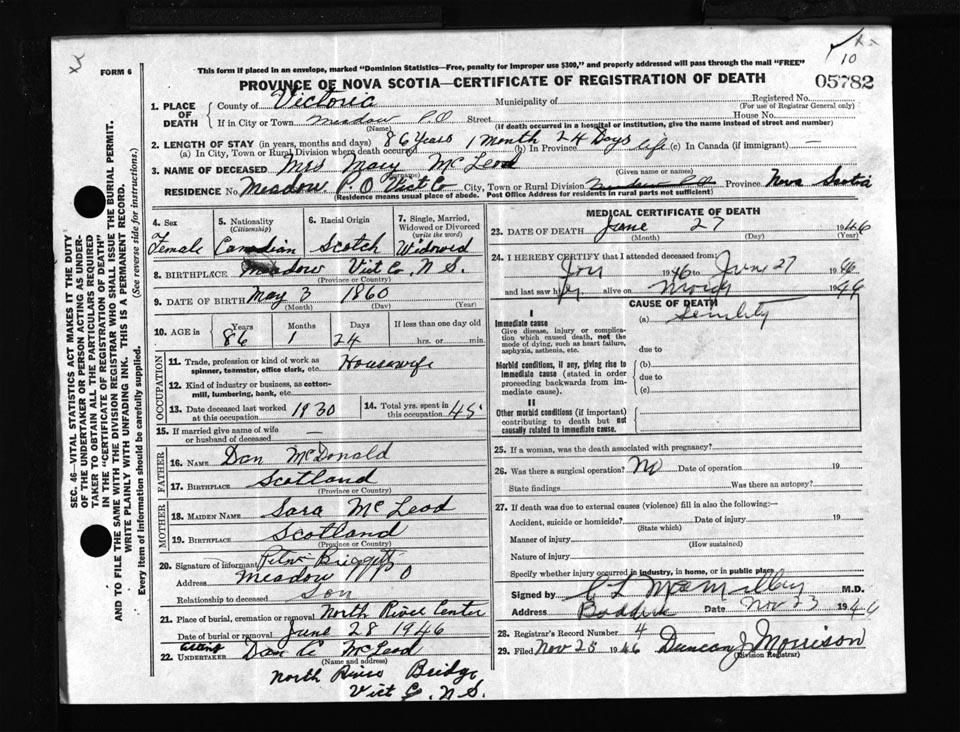 FORM 6
This form if placed in an envelope, marked "Dominion Statistics—Free, penalty for improper use $300," and properly addressed will pass through the mail "FREE"
10
PROVINCE OF NOVA SCOTIA—CERTIFICATE OF REGISTRATION OF DEATH
05782
1. PLACE OF DEATH
County of Victoria Municipality of Registered No.
(For use of Registrar General only)
If in City or Town Meadow P.O Street House No.
(Name) (If death occurred in a hospital or institution, give the name instead of street and number)
2. LENGTH OF STAY (in years, months and days) 86 Years 1 Month 24 Days
(a) In City, Town or Rural Division where death occurred (b) In Province life (c) In Canada (if immigrant) —
3. NAME OF DECEASED Mrs Mary McLeod
(Surname) (Given name or names)
RESIDENCE No. Meadow P.O Vict Co City, Town or Rural Division Meadow P.O Province Nova Scotia
(Residence means usual place of abode. Post Office Address for residents in rural parts not sufficient)
SEC. 46—VITAL STATISTICS ACT MAKES IT THE DUTY
OF THE UNDERTAKER OR PERSON ACTING AS UNDER-
TAKER TO OBTAIN ALL THE PARTICULARS REQUIRED
IN THE "CERTIFICATE OF REGISTRATION OF DEATH"
AND TO FILE THE SAME WITH THE DIVISION REGISTRAR WHO SHALL ISSUE THE BURIAL PERMIT.
WRITE PLAINLY WITH UNFADING INK. THIS IS A PERMANENT RECORD.
Every item of information should be carefully supplied. (See reverse side for instructions.)
4. Sex
Female
5. Nationality
(Citizenship)
Canadian
6. Racial Origin
Scotch
7. Single, Married, Widowed or Divorced
(write the word)
Widowed
8. BIRTHPLACE Meadow Vict Co. N S.
(Province or Country)
9. DATE OF BIRTH May 3 1860
(Month) (Day) (Year)
10. AGE in
Years Months Days If less than one day old
86 1 24 hrs. or min.
OCCUPATION
11. Trade, profession or kind of work as spinner, teamster, office clerk, etc. Housewife
12. Kind of industry or business, as cotton-mill, lumbering, bank, etc.
13. Date deceased last worked at this occupation 1930
14. Total yrs. spent in this occupation 45
15. If married give name of wife or husband of deceased —
FATHER
16. NAME Dan McDonald
17. BIRTHPLACE Scotland
(Province or Country)
MOTHER
18. MAIDEN NAME Sara McLeod
19. BIRTHPLACE Scotland
(Province or Country)
20. Signature of informant Peter
Address Meadow P O
Relationship to deceased Son
21. Place of burial, cremation or removal North River Center
Date of burial or removal June 28 1946
22. UNDERTAKER Dan A McLeod
(Name and address)
North River Bridge
Vict Co. N.S.
MEDICAL CERTIFICATE OF DEATH
23. DATE OF DEATH June 27 1946
(Month) (Day) (Year)
24. I HEREBY CERTIFY that I attended deceased from:
Jan 1946 to June 27 1946
and last saw h alive on 1946
CAUSE OF DEATH
I
Immediate cause
Give disease, injury or complication which caused death, not the mode of dying, such as heart failure, asphyxia, asthenia, etc.
(a) Senility
due to
Morbid conditions, if any, giving rise to immediate cause (stated in order proceeding backwards from immediate cause).
(b)
due to
(c)
II
Other morbid conditions (if important) contributing to death but not causally related to immediate cause.
25. If a woman, was the death associated with pregnancy?
26. Was there a surgical operation? No Date of operation 19
State findings Was there an autopsy?
27. If death was due to external causes (violence) fill in also the following:
Accident, suicide or homicide? Date of injury 19
(State which)
Manner of injury
(How sustained)
Nature of injury
Specify whether injury occurred in industry, in home, or in public place
Signed by C L McMillan M.D.
Address Baddeck Date Nov 23 1946
28. Registrar's Record Number 4
29. Filed Nov 25 1946 Duncan J Morrison
(Division Registrar)